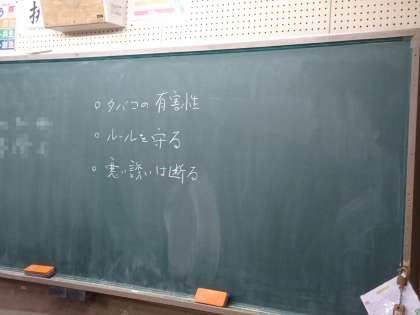 ○ タバコの有害性
○ ルールを守る
○ 悪い誘いは断る